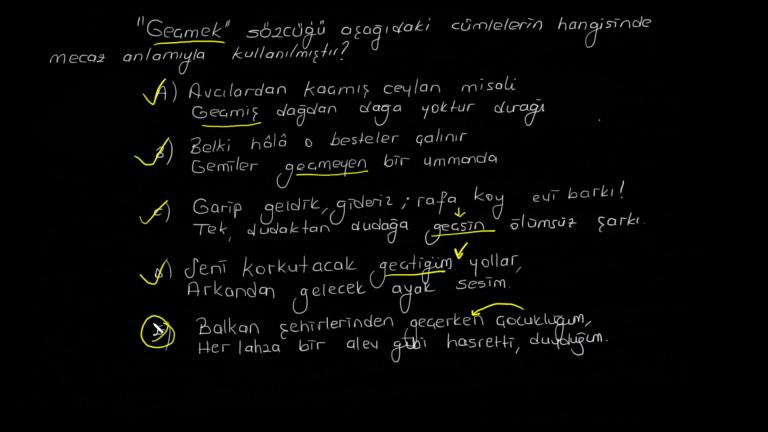 "Geçmek" sözcüğü aşağıdaki cümlelerin hangisinde
mecaz anlamıyla kullanılmıştır?
A) Avcılardan kaçmış ceylan misali
Geçmiş dağdan dağa yoktur durağı
B) Belki hâlâ o besteler çalınır
Gemiler geçmeyen bir ummanda
C) Garip geldik, gideriz; rafa koy evi barkı!
Tek, dudaktan dudağa geçsin ölümsüz şarkı.
D) Seni korkutacak geçtiğim yollar,
Arkandan gelecek ayak sesim.
Balkan şehirlerinden geçerken çocukluğum,
Her lahza bir alev gibi hasretti, duyduğum.